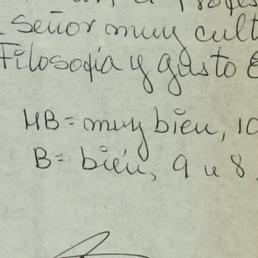 Señor muy cult
Filosofia y gusto
MB = muy bien, 10
B = bien, 9 u 8